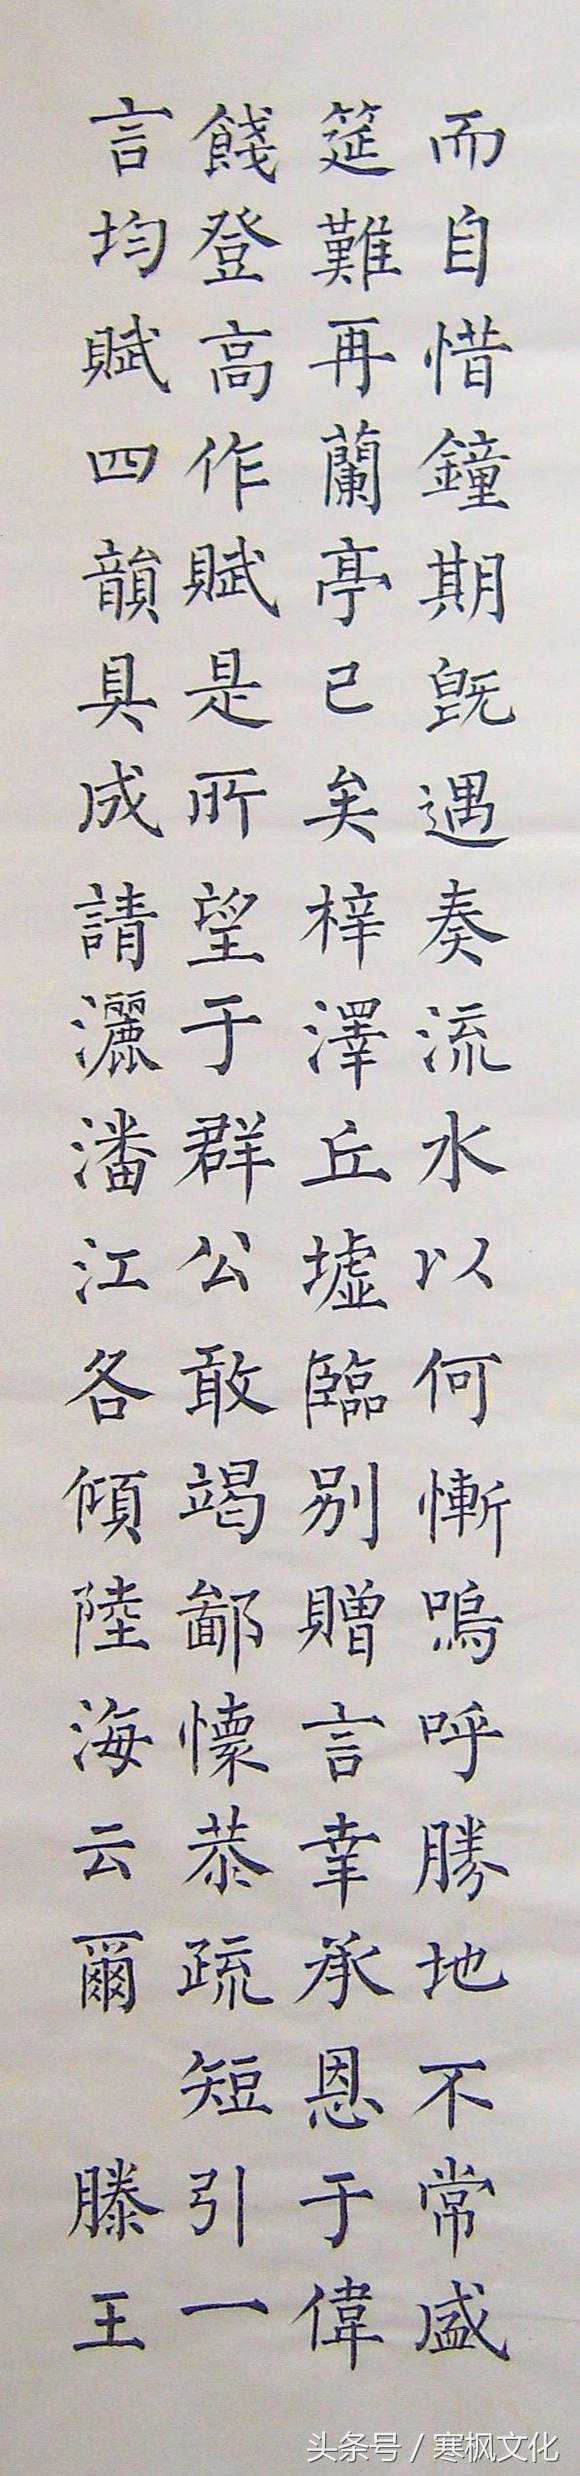 而自惜鐘期既遇奏流水以何慚嗚呼勝地不常盛
筵難再蘭亭已矣梓澤丘墟臨別贈言幸承恩于偉
餞登高作賦是所望于群公敢竭鄙懷恭疏短引一
言均賦四韻具成請灑潘江各傾陸海云爾 滕王
头条号 / 寒枫文化